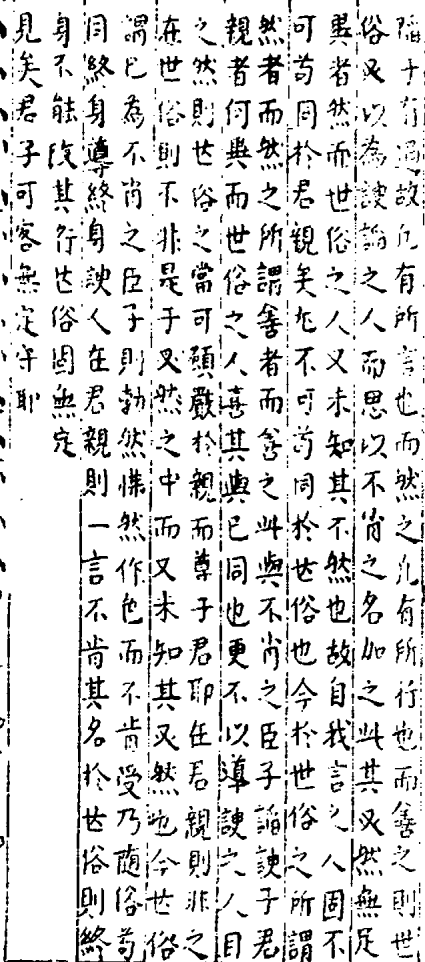 陷于有過故凡有所言也而然之凡有所行也而善之則世
俗又以為諛諂之人而思以不肖之名加之此其又然無足
異者然而世俗之人又未知其不然也故自我言之人固不
可苟同於君親矣尤不可苟同於世俗也今於世俗之所謂
然者而然之所謂善者而善之此與不肖之臣子諂諛于君
親者何異而世俗之人喜其與已同也更不以導諛之人目
之然則世俗之當可願嚴於親而尊于君耶在君親則非之
在世俗則不非是于又然之中而又未知其又然也今世俗
謂已為不肖之臣子則勃然慄然作色而不肯受乃随俗苟
同終身導終身諛人在君親則一言不肯其名於世俗則終
身不能改其行世俗固無定
見矣君子可容無定守耶